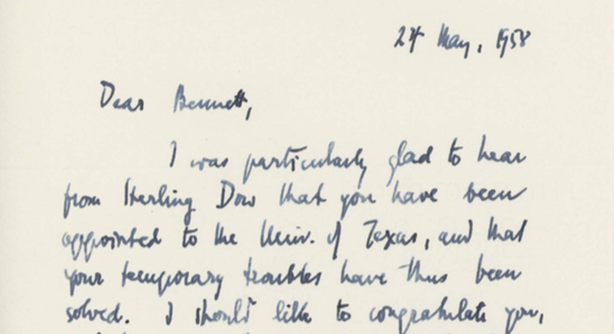 24 May, 1958
Dear Bennett,
I was particularly glad to hear
from Sterling Dow that you have been
appointed to the Univ. of Texas, and that
your temporary troubles have thus been
solved. I should like to congratulate you,